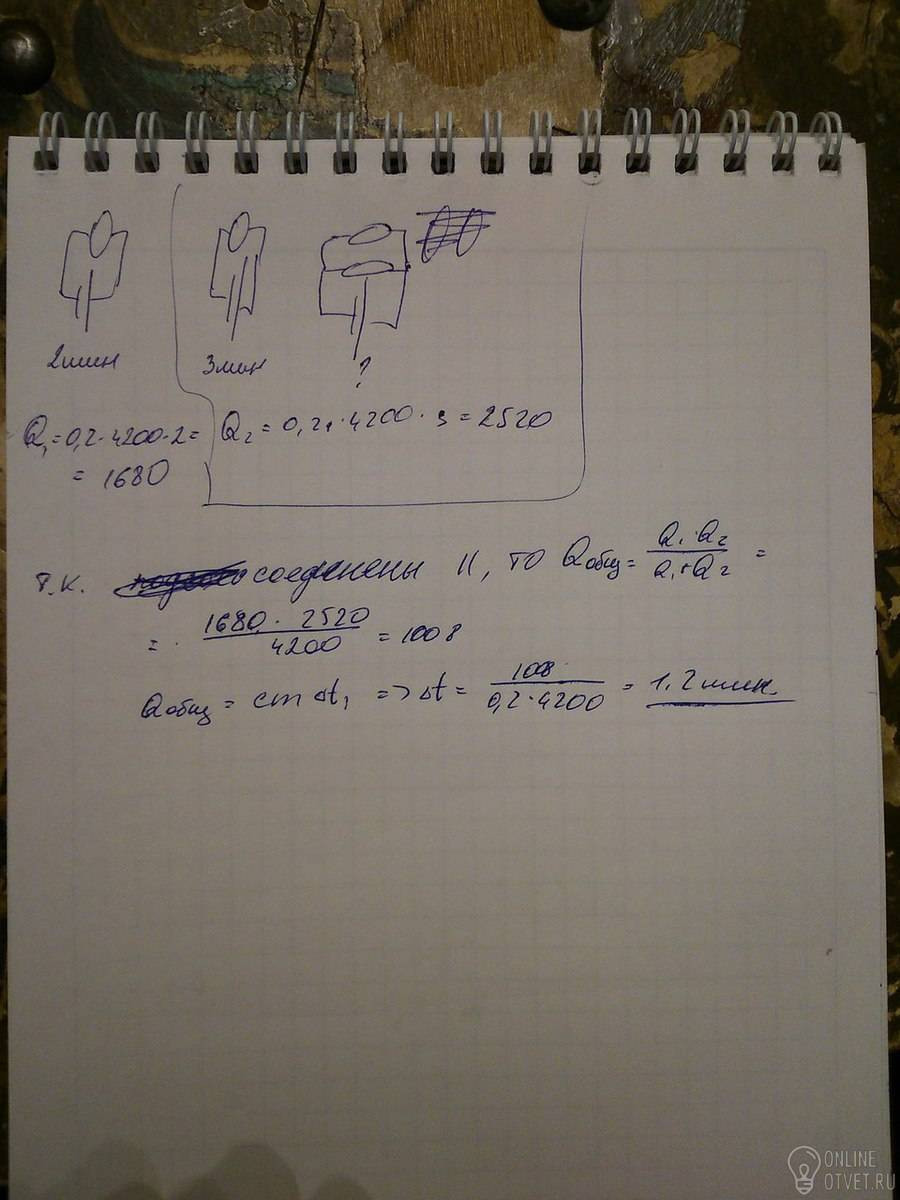 2мин
3мин
?
Q₁=0,2·4200·2=
= 1680
Q₂ = 0,2·4200·3=2520
Т.К. соединены II, ТО Qобщ= Q₁·Q₂ / Q₁+Q₂ =
= 1680·2520 / 4200 = 1008
Qобщ = cmΔt, => Δt = 1008 / 0,2·4200 = 1,2 мин.
ONLINE
OTVET.RU